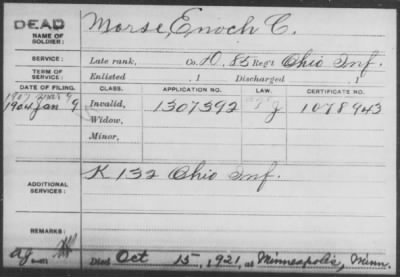 DEAD
NAME OF SOLDIER:
Morse, Enoch C.
SERVICE:
Late rank, Co. D, 85 Reg't Ohio Inf.
TERM OF SERVICE:
Enlisted , 1 Discharged , 1
DATE OF FILING. CLASS. APPLICATION NO. LAW. CERTIFICATE NO.
1904 Jan 9 Invalid, 1307392 1078943
Widow,
Minor,
ADDITIONAL SERVICES:
K 132 Ohio Inf.
REMARKS:
Died Oct 15, 1921, at Minneapolis, Minn.